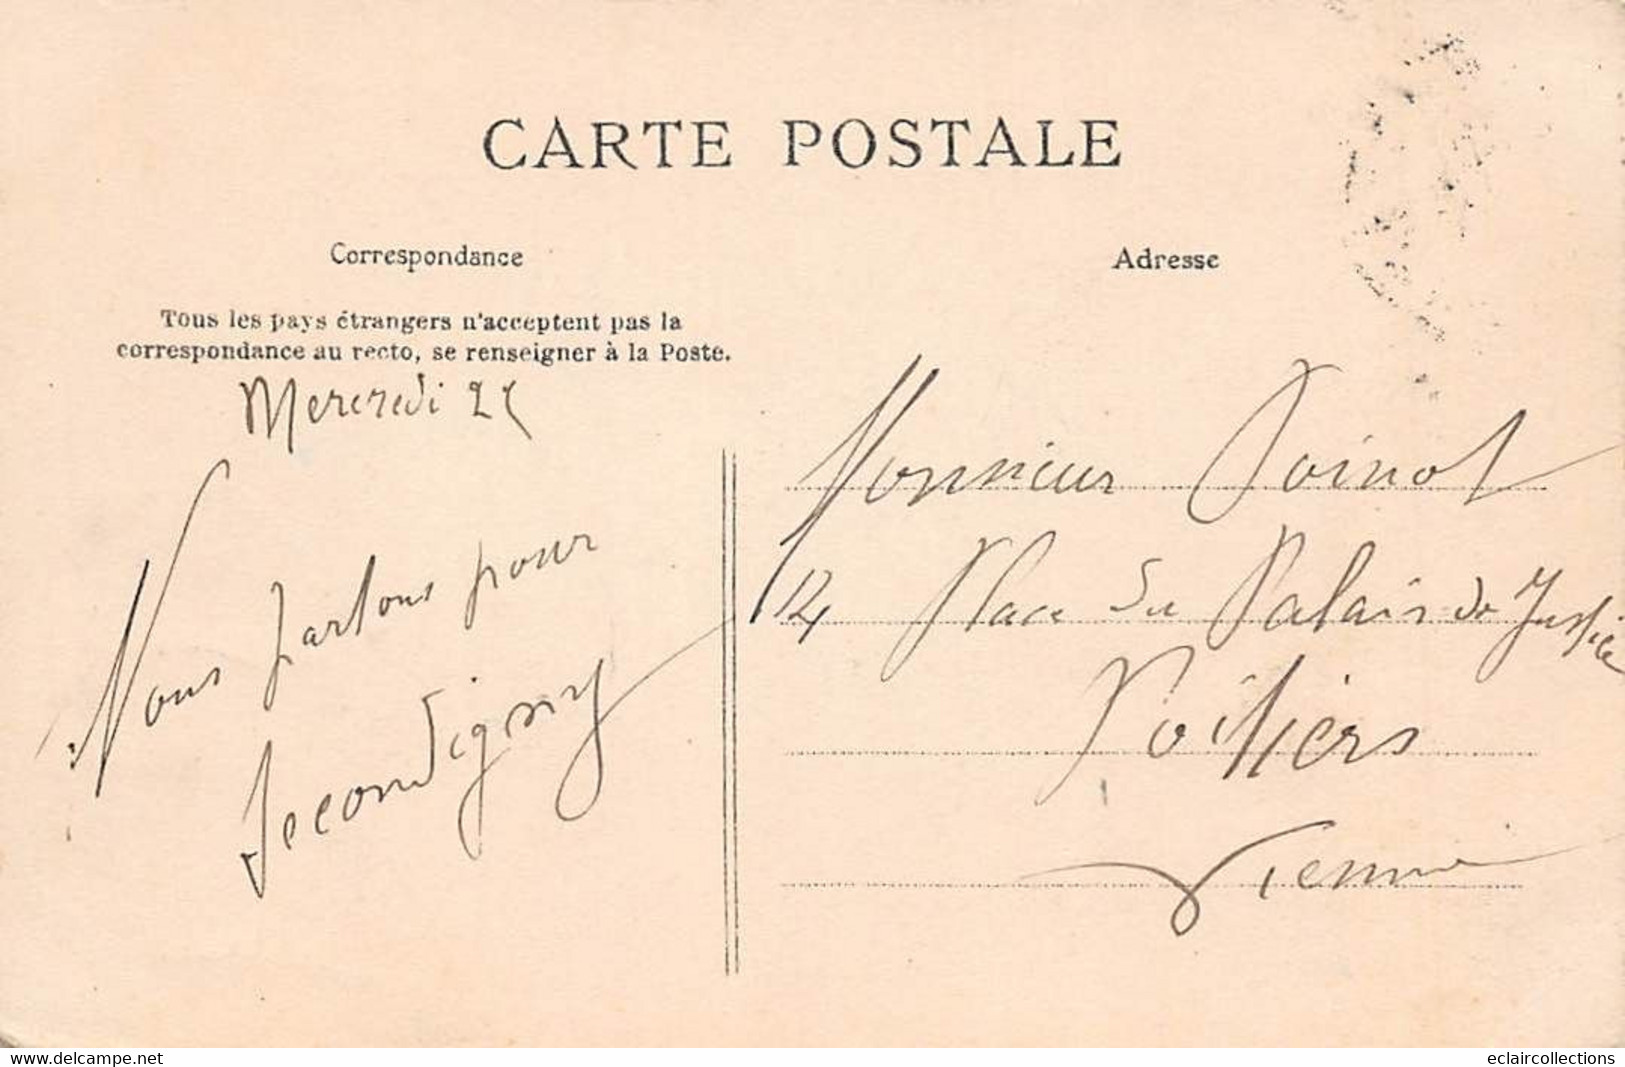 CARTE POSTALE
Correspondance
Tous les pays étrangers n'acceptent pas la
correspondance au recto, se renseigner à la Poste.
Mercredi 25
Nous partons pour
Secondigny
Adresse
Monsieur Poinot
14 Place du Palais de Justice
Poitiers
Vienne
www.delcampe.net
eclaircollections